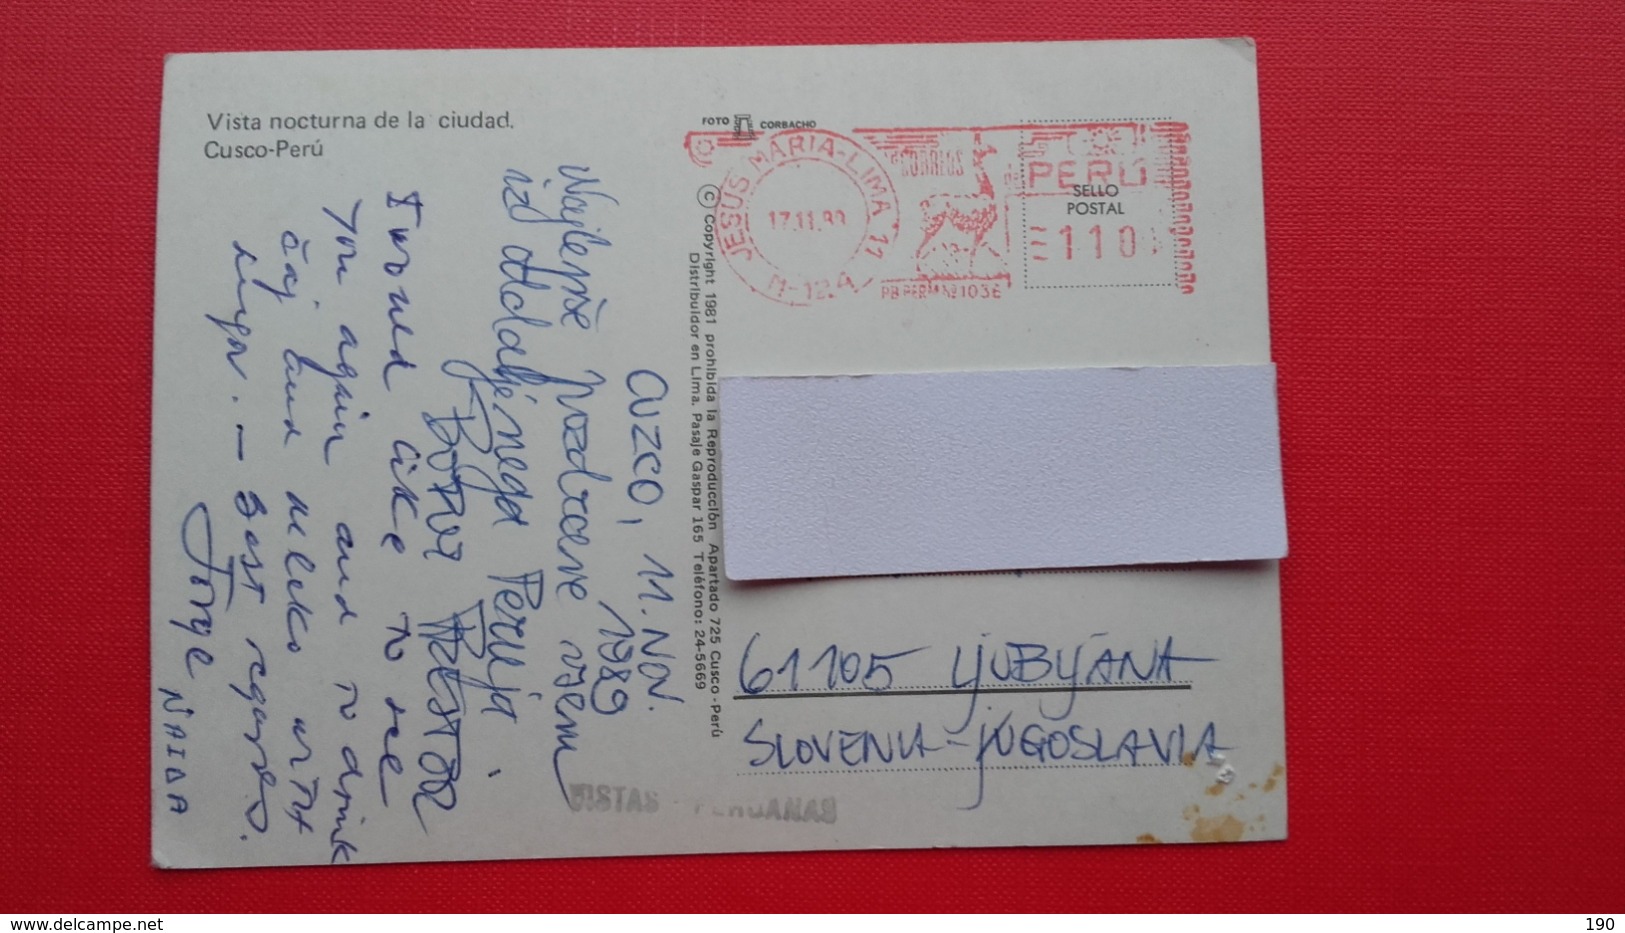 Vista nocturna de la ciudad.
Cusco-Perú
FOTO CORBACHO
© Copyright 1981 prohibida la Reproducción Apartado 725 Cusco-Perú
Distribuidor en Lima. Pasaje Gaspar 165 Teléfono: 24-5669
JESUS MARIA-LIMA 11
17.11.89
M-12.A
CORREOS
del PERÚ
SELLO
POSTAL
110
PB PERM Nº 1036
CUZCO, 11. NOV.
1989
Najlepše pozdrave vsem
iz daljnega Peruja
Botor
I would like to see
you again and to drink
čaj and mleko with
you. - Best regards.
Jorge
NAIDA
61105 LJUBLJANA
SLOVENIA-JUGOSLAVIA
VISTAS PERUANAS
190
delcampe.net